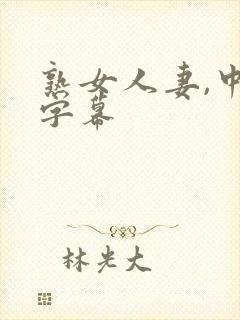 熟女人妻,中
字幕
林光大